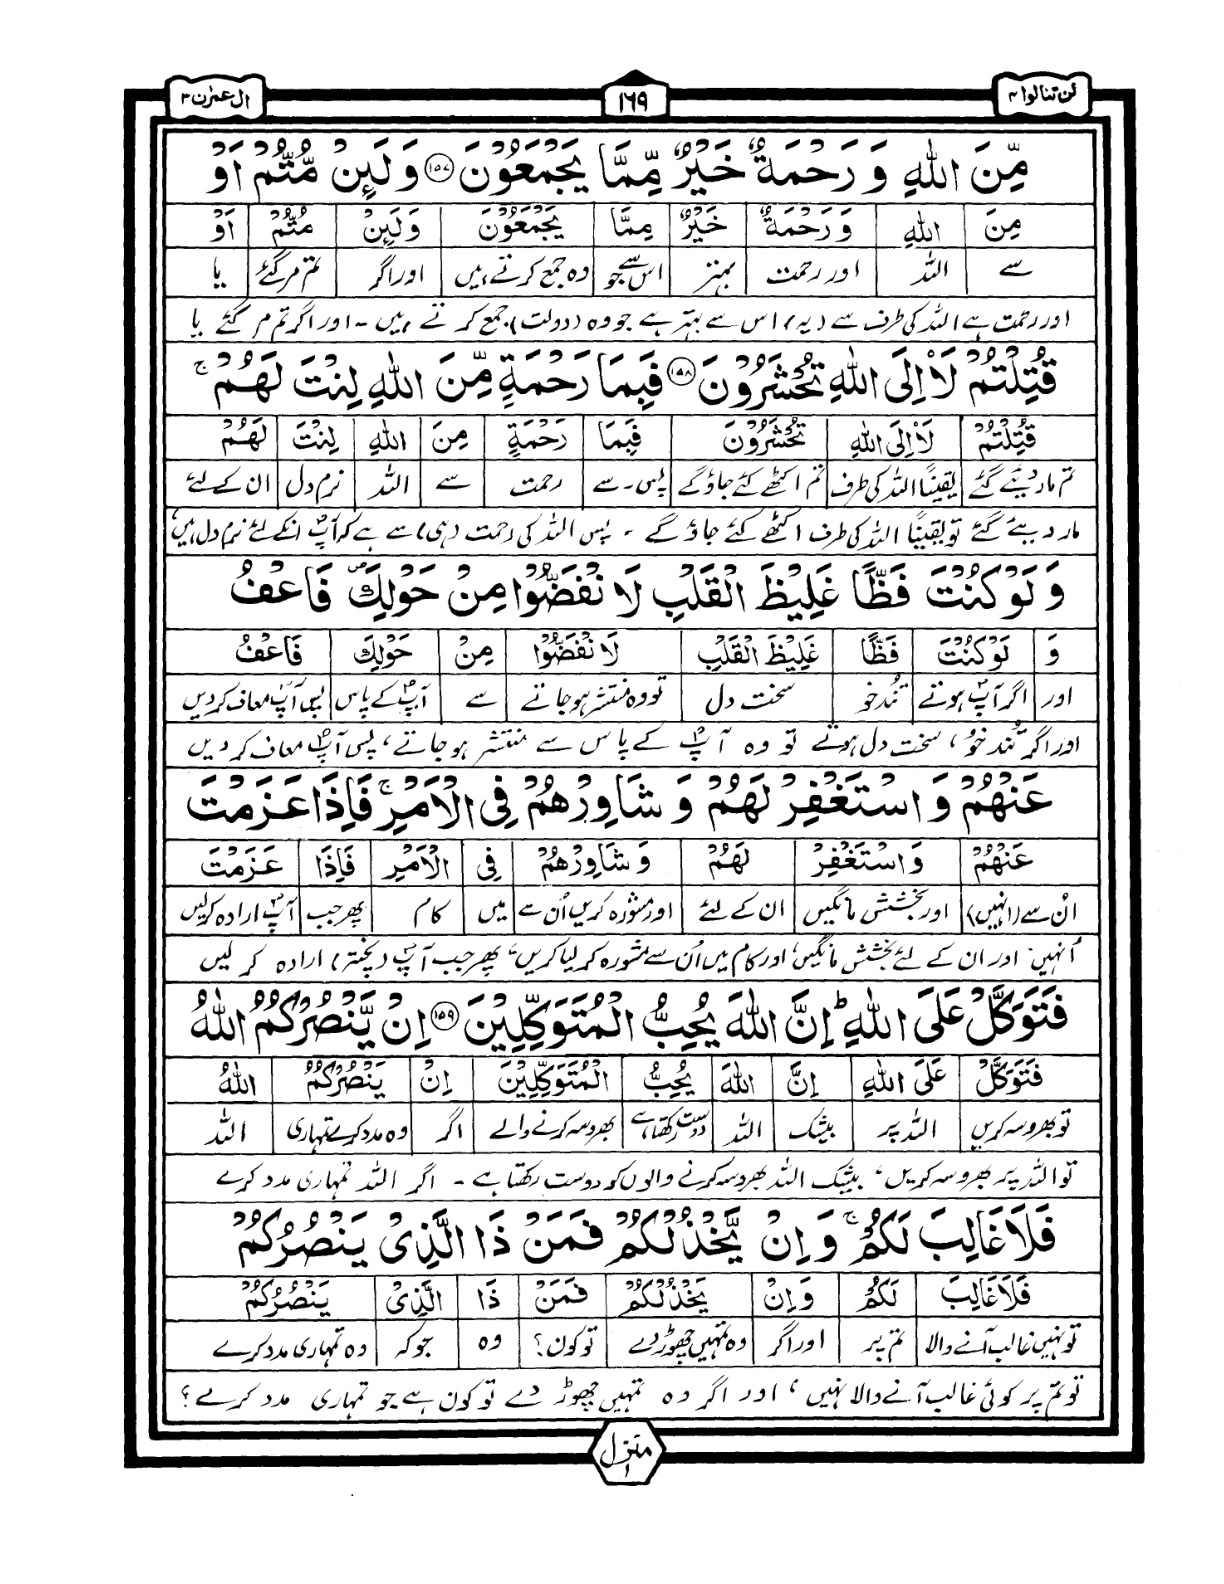 لن تنالوا ۴
۱۶۹
اٰل عمرٰن ۳
مِّنَ اللّٰهِ وَ رَحْمَةٌ خَيْرٌ مِّمَّا يَجْمَعُوْنَ ﴿۱۵۷﴾ وَ لَئِنْ مُّتُّمْ اَوْ
مِنَ اللّٰهِ وَرَحْمَةٌ خَيْرٌ مِمَّا يَجْمَعُوْنَ وَلَئِنْ مُتُّمْ اَوْ
سے اللہ اور رحمت بہتر اس سے جو وہ جمع کرتے ہیں اور اگر تم مر گئے یا
اور رحمت ہے اللہ کی طرف سے (یہ) اس سے بہتر ہے جو وہ (دولت) جمع کرتے ہیں - اور اگر تم مر گئے یا
قُتِلْتُمْ لَاْ اِلَى اللّٰهِ تُحْشَرُوْنَ ﴿۱۵۸﴾ فَبِمَا رَحْمَةٍ مِّنَ اللّٰهِ لِنْتَ لَهُمْ ۚ
قُتِلْتُمْ لَاْ اِلَى اللّٰهِ تُحْشَرُوْنَ فَبِمَا رَحْمَةٍ مِنَ اللّٰهِ لِنْتَ لَهُمْ
تم مار دیئے گئے یقیناً اللہ کی طرف تم اکٹھے کئے جاؤ گے پس - سے رحمت سے اللہ نرم دل ان کے لئے
مار دیئے گئے تو یقیناً اللہ کی طرف اکٹھے کئے جاؤ گے - پس اللہ کی رحمت (ہی) سے ہے کہ آپؐ انکے لئے نرم دل ہیں
وَ لَوْ كُنْتَ فَظًّا غَلِيْظَ الْقَلْبِ لَا نْفَضُّوْا مِنْ حَوْلِكَ ۪ فَاعْفُ
وَ لَوْ كُنْتَ فَظًّا غَلِيْظَ الْقَلْبِ لَا نْفَضُّوْا مِنْ حَوْلِكَ فَاعْفُ
اور اگر آپؐ ہوتے تُندخو سخت دل تو وہ منتشر ہو جاتے سے آپؐ کے پاس پس آپؐ معاف کر دیں
اور اگر تُندخو، سخت دل ہوتے تو وہ آپؐ کے پاس سے منتشر ہو جاتے، پس آپؐ معاف کر دیں
عَنْهُمْ وَ اسْتَغْفِرْ لَهُمْ وَ شَاوِرْهُمْ فِى الْاَمْرِ ۚ فَاِذَا عَزَمْتَ
عَنْهُمْ وَ اسْتَغْفِرْ لَهُمْ وَ شَاوِرْهُمْ فِى الْاَمْرِ فَاِذَا عَزَمْتَ
اُن سے (انہیں) اور بخشش مانگیں ان کے لئے اور مشورہ کریں اُن سے میں کام پھر جب آپؐ ارادہ کرلیں
اُنہیں اور ان کے لئے بخشش مانگیں، اور کام میں اُن سے مشورہ کر لیا کریں، پھر جب آپؐ (پختہ) ارادہ کر لیں
فَتَوَكَّلْ عَلَى اللّٰهِ ؕ اِنَّ اللّٰهَ يُحِبُّ الْمُتَوَكِّلِيْنَ ﴿۱۵۹﴾ اِنْ يَّنْصُرْكُمُ اللّٰهُ
فَتَوَكَّلْ عَلَى اللّٰهِ اِنَّ اللّٰهَ يُحِبُّ الْمُتَوَكِّلِيْنَ اِنْ يَنْصُرْكُمُ اللّٰهُ
تو بھروسہ کریں اللہ پر بیشک اللہ دوست رکھتا ہے بھروسہ کرنے والے اگر وہ مدد کرے تمہاری اللہ
تو اللہ پر بھروسہ کریں، بیشک اللہ بھروسہ کرنے والوں کو دوست رکھتا ہے - اگر اللہ تمہاری مدد کرے
فَلَا غَالِبَ لَكُمْ ۚ وَ اِنْ يَّخْذُلْكُمْ فَمَنْ ذَا الَّذِىْ يَنْصُرُكُمْ
فَلَا غَالِبَ لَكُمْ وَ اِنْ يَخْذُلْكُمْ فَمَنْ ذَا الَّذِىْ يَنْصُرُكُمْ
تو نہیں غالب آنے والا تم پر اور اگر وہ تمہیں چھوڑ دے تو کون؟ وہ جو کہ وہ تمہاری مدد کرے
تو تم پر کوئی غالب آنے والا نہیں، اور اگر وہ تمہیں چھوڑ دے تو کون ہے جو تمہاری مدد کرے؟
منزل ۱